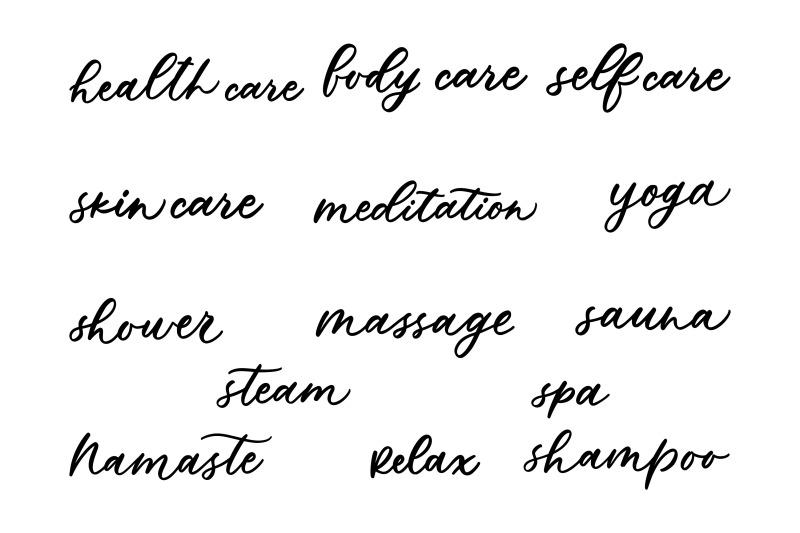 health care body care self care
skin care meditation yoga
shower massage sauna
steam spa
Namaste Relax shampoo